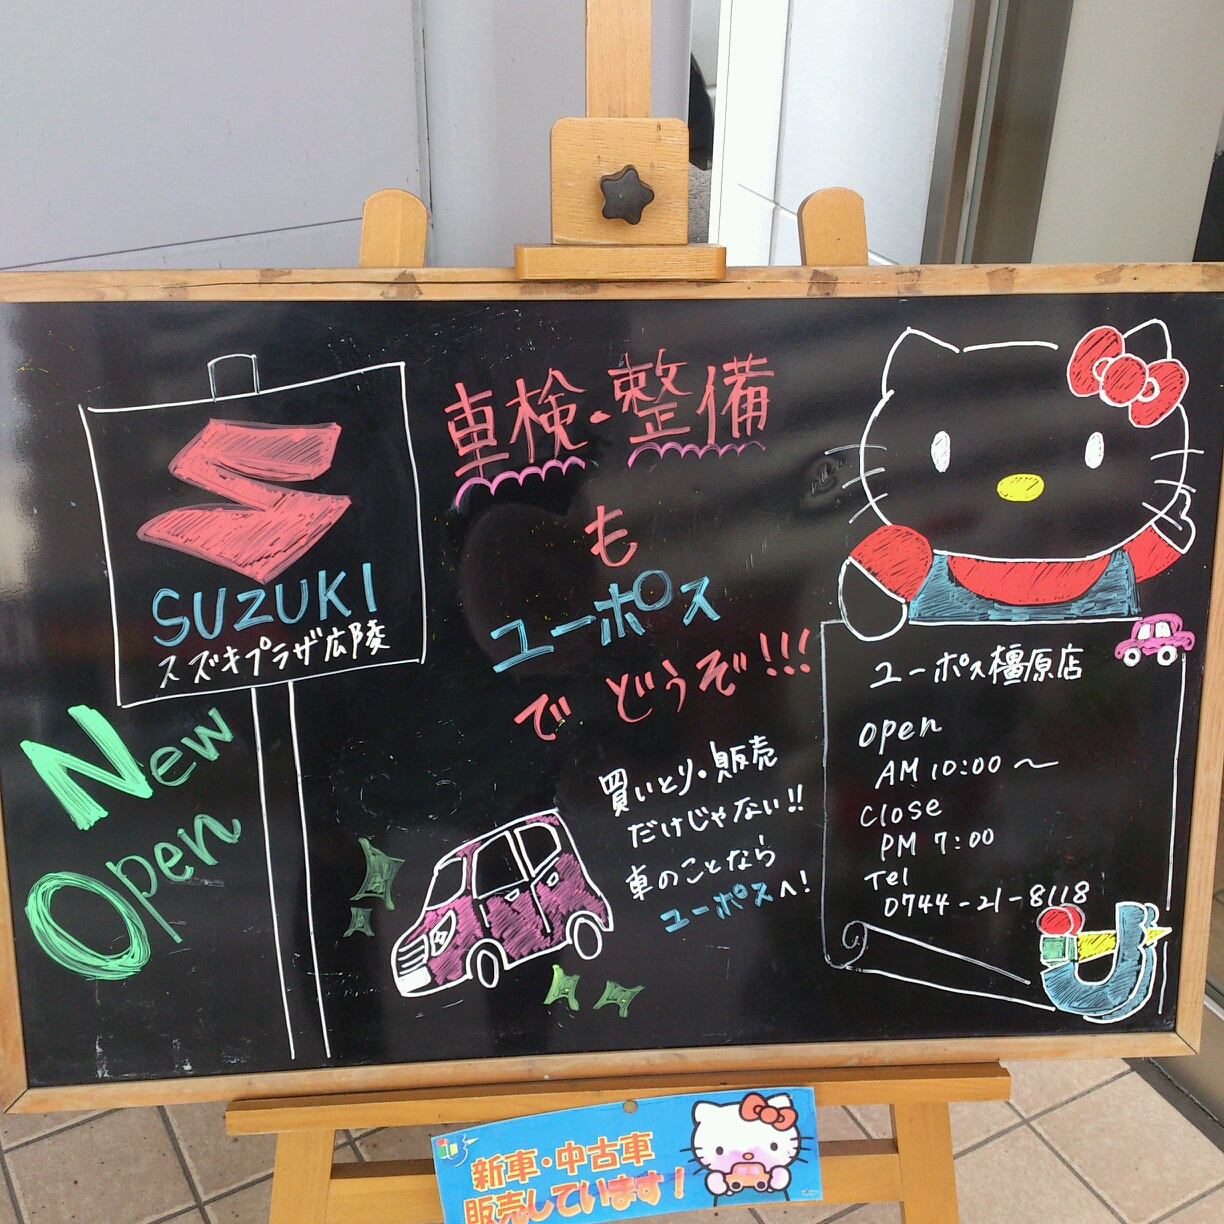 SUZUKI
スズキプラザ広陵
New
Open
車検・整備
も
ユーポス
でどうぞ!!!
買いとり・販売
だけじゃない!!
車のことなら
ユーポスへ!
ユーポス橿原店
Open
AM 10:00〜
Close
PM 7:00
Tel
0744-21-8118
新車・中古車
販売しています!